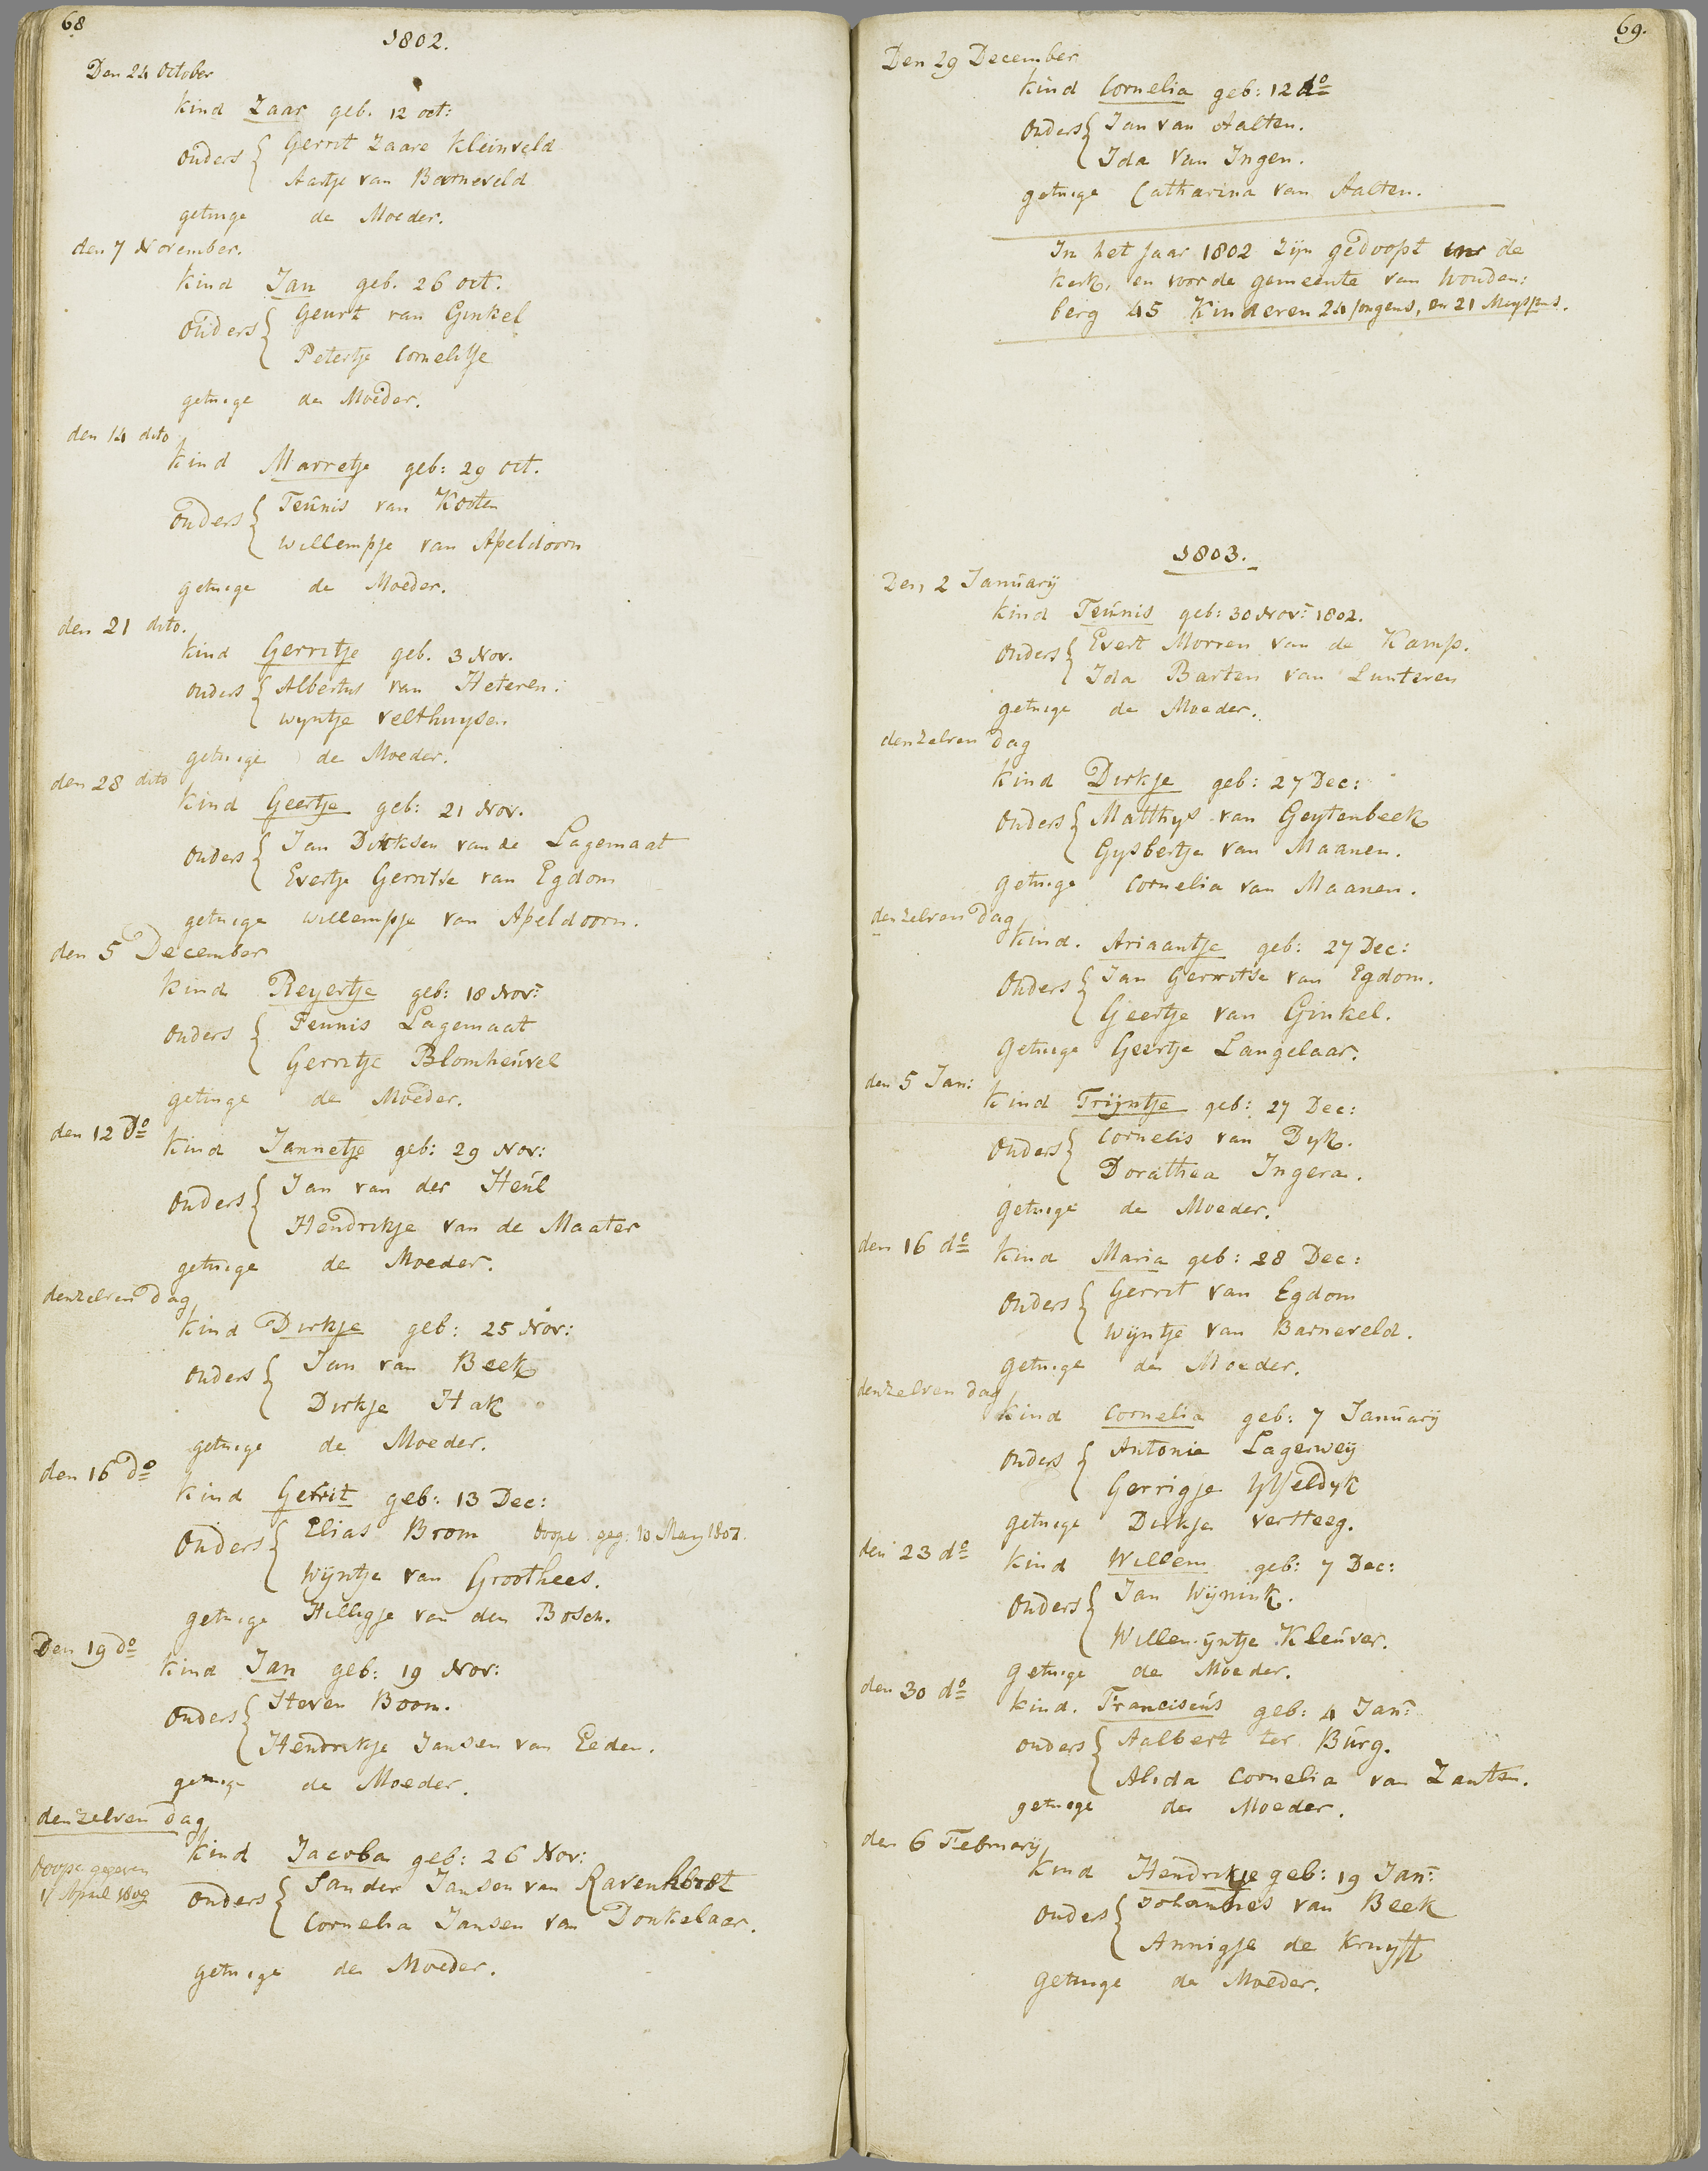 68
1802.
Den 24 October
kind Zaar geb. 12 oct:
Ouders { Gerrit Zaare Kleinveld
Aartje van Barneveld
getuige de Moeder.
den 7 November.
kind Jan geb. 26 oct.
Ouders { Geurt van Ginkel
Petertje Cornelisse
getuige de Moeder.
den 14 dito
kind Marretje geb: 29 oct.
Ouders { Teunis van Kooten
Willempje van Apeldoorn
getuige de Moeder.
den 21 dito.
kind Gerritje geb. 3 Nov.
Ouders { Albertus van Heteren.
Wyntje Velthuysen
getuige de Moeder.
den 28 dito
kind Geertje geb: 21 Nov.
Ouders { Jan Dirksen van de Lagemaat
Evertje Gerritse van Egdom
getuige Willempje van Apeldoorn.
den 5 December
kind Reyertje geb: 18 Nov:
Ouders { Teunis Lagemaat
Gerritje Blomheuvel
getuige de Moeder.
den 12 Do
kind Jannetje geb: 29 Nov:
Ouders { Jan van der Heul
Hendrikje van de Maater
getuige de Moeder.
denzelven Dag
kind Dirkje geb: 25 Nov:
Ouders { Jan van Beek
Dirkje Hak
getuige de Moeder.
den 16 Do
kind Gerrit geb: 13 Dec:
Ouders { Elias Brom doope geg: 10 May 1807.
Wijntje van Groothees.
getuige Hilligje van den Bosch.
Den 19 do
kind Jan geb: 19 Nov:
Ouders { Steven Boom.
Hendrikje Jansen van Eeden.
getuige de Moeder.
denzelven Dag
kind Jacoba geb: 26 Nov:
doope gegeven
17 April 1809
Ouders { Sander Jansen van Ravenhorst
Cornelia Jansen van Donkelaar.
getuige de Moeder.
69.
Den 29 December
kind Cornelia geb: 12 do
Ouders { Jan van Aalten.
Ida van Ingen.
getuige Catharina van Aalten.
In het Jaar 1802 zijn gedoopt in de
kerk, en voor de gemeente van Wouden:
berg 45 Kinderen 24 Jongens, en 21 Meysjens.
1803.
Den 2 January
kind Teunis geb: 30 Nov: 1802.
Ouders { Evert Morren van de Kamp.
Ida Barten van Lunteren
getuige de Moeder.
denzelven Dag
kind Dirkje geb: 27 Dec:
Ouders { Matthys van Geytenbeek
Gysbertje van Maanen.
Getuige Cornelia van Maanen.
denzelven Dag
kind. Ariaantje geb: 27 Dec:
Ouders { Jan Gerritse van Egdom.
Geertje van Ginkel.
Getuige Geertje Langelaar.
den 5 Jan:
kind Trijntje geb: 27 Dec:
Ouders { Cornelis van Dyk.
Dorathea Ingera.
Getuige de Moeder.
den 16 do
kind Maria geb: 28 Dec:
Ouders { Gerrit van Egdom
Wijntje van Barneveld.
Getuige de Moeder.
denzelven Dag
kind Cornelia geb: 7 January
Ouders { Antonie Lagerweij
Gerrigje IJsseldyk
getuige Dirkje Versteeg.
den 23 do
kind Willem geb: 7 Dec:
Ouders { Jan Wijnink.
Willemijntje Kleuver.
Getuige de Moeder.
den 30 do
kind. Franciscus geb: 4 Jan:
Ouders { Aalbert ter Burg.
Alida Cornelia van Zanten.
getuige de Moeder.
den 6 February
kind Hendrikje geb: 19 Jan:
Ouders { Johannes van Beek
Annigje de Kruyff
Getuige de Moeder.